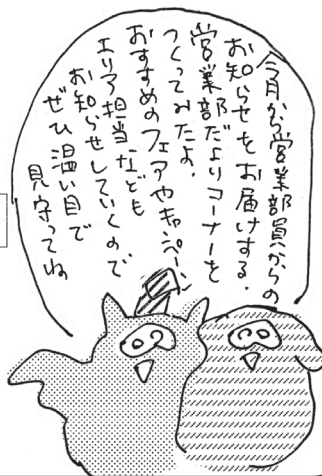 今月から営業部員からの
お知らせをお届けする、
営業部だよりコーナーを
つくってみたよ。
おすすめのフェアやキャンペーン
エリア担当なども
お知らせしていくので
ぜひ温い目で
見守ってね